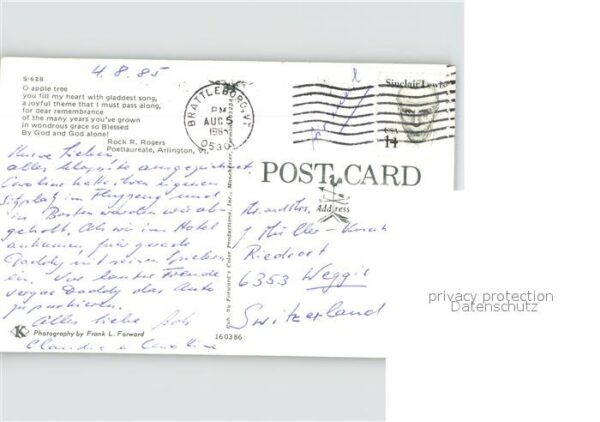 4.8.85
S-628
O apple tree
you fill my heart with gladdest song,
a joyful theme that I must pass along,
for dear remembrance
of the many years you've grown
in wondrous grace so Blessed
By God and God alone!
Rock R. Rogers
Poetlaureate, Arlington, Vt.
BRATTLEBORO, VT
PM
AUG 5
1985
Sinclair Lewis
USA
14
POST CARD
Address
Lieben,
alles klappte ausgezeichnet.
Caroline hatte ihren eigenen
Sitzplatz im Flugzeug und
in Boston wurden wir ab-
geholt. Als wir im Hotel
ankamen, fuhr gerade
Daddy mit seinen
ein. Vor lauter Freude
vergas Daddy das Auto
zu parkieren.
Alles liebe
Claudia + Caroline
Mr. and Mrs.
J. Müller-
Riedsort
6353 Weggis
Switzerland
Pub. by Forward's Color Productions, Inc., Manchester,
K Photography by Frank L. Forward
160386
privacy protection
Datenschutz